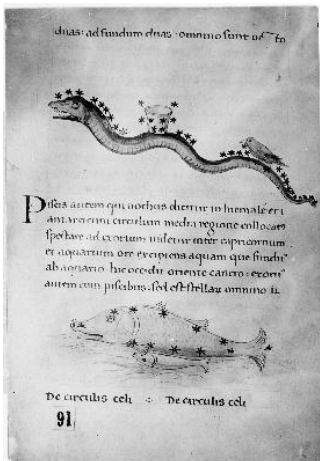 duas · ad fundum duas · omnino sunt octo
Piscis autem qui nothus dicitur in hiemale et
antarticum circulum media regione collocatus
spectare ad exortum uidetur inter capricornum
et aquarium ore excipiens aquam que fundit
ab aquario hic occidit oriente cancro : exorit
autem cum piscibus : sed est stellarum omnino
De circulis celi De circulis celi
91